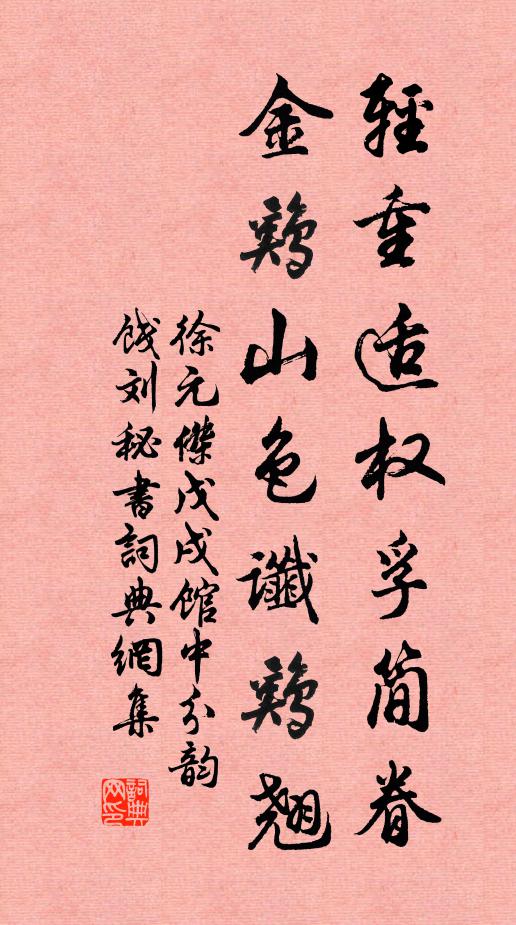 輕重适权孚简眷
金鷄山色谶鷄翘
徐元傑戊戌馆中分韵
饯刘秘书詞典網集
詞典网印